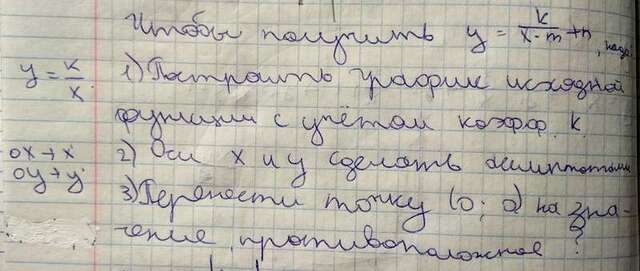 Чтобы получить y = k/(x-m) + n, надо
y = k/x 1) Построить график исходной
функции с учётом коэфф. k
ox → x 2) Оси x и y сделать асимптотами
oy → y 3) Перенести точку (0; 0) на зна-
чение, противоположное ?